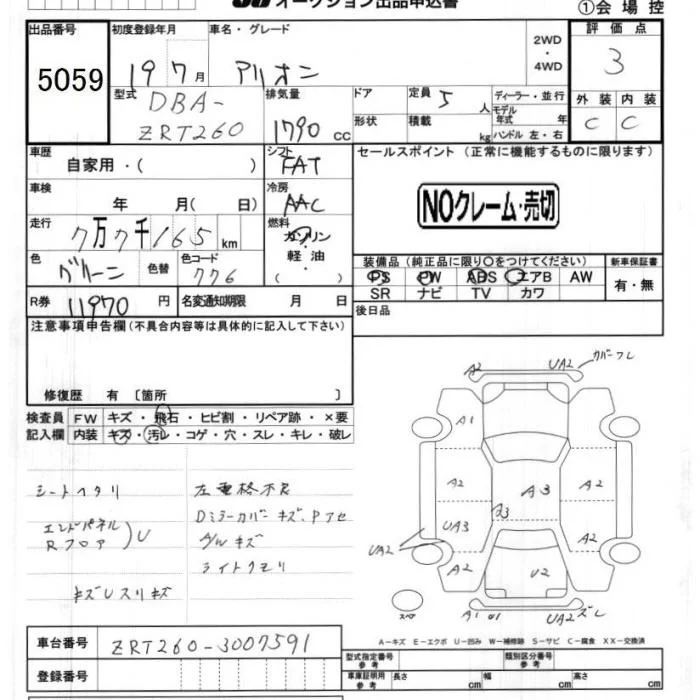 オークション出品申込書
①会場控
出品番号
5059
初度登録年月
19 7月
車名・グレード
アリオン
2WD
・
4WD
評価点
3
外装 内装
C C
型式
DBA-
ZRT260
排気量
1790 cc
ドア
形状
定員 5人
積載 kg
ディーラー・並行
モデル
年式 年
ハンドル 左・右
車歴
自家用・( )
シフト
FAT
セールスポイント (正常に機能するものに限ります)
NOクレーム・売切
車検
年 月( 日)
冷房
AAC
走行
7万7千165km
燃料
ガソリン
・
軽油
( )
色
グリーン
色替
色コード
776
装備品 (純正品に限り○をつけてください)
PS PW ABS エアB AW
SR ナビ TV カワ
新車保証書
有・無
R券
11970 円
名変通知期限 月 日
後日品
注意事項申告欄(不具合内容等は具体的に記入して下さい)
修復歴 有 〔箇所 〕
検査員
記入欄
FW キズ・飛石・ヒビ割・リペア跡・×要
内装 キズ・汚レ・コゲ・穴・スレ・キレ・破レ
シートヘタリ
エンドパネル
Rフロア
U
キズUスリキズ
左電格不良
Dミラーカバーキズ、Pアセ
A/Wキズ
ライトクモリ
A2
UA2
カバーズレ
A1
A2
A3
A2
UA3
A3
A2
UA2
A2
U2
A2
スペア
A1
U1
UA2ズレ
A-キズ E-エクボ U-凹み W-補修跡 S-サビ C-腐食 XX-交換済
車台番号
ZRT260-3007591
登録番号
型式指定番号
参考
類別区分番号
参考
車庫証明用
参考
長さ cm
幅 cm
高さ cm